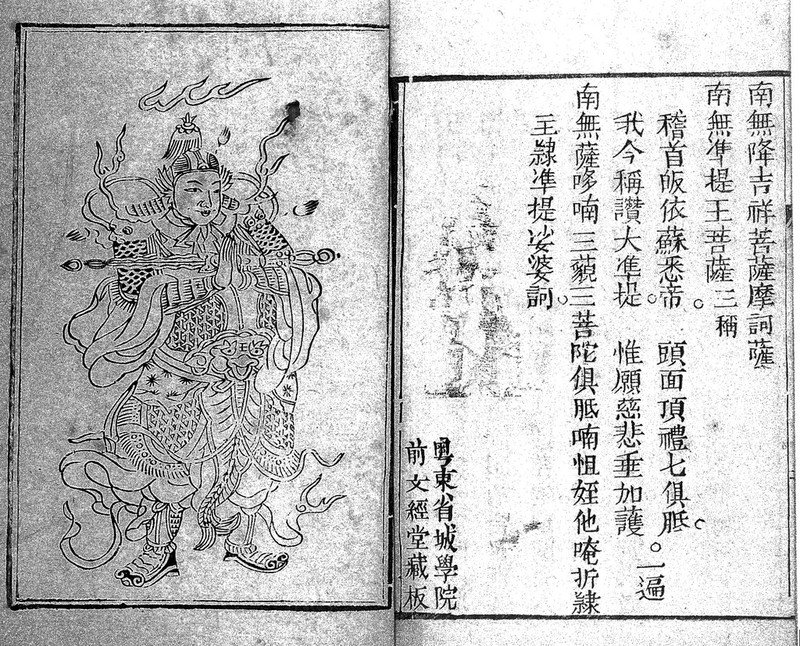 南無降吉祥菩薩摩訶薩
南無準提王菩薩三稱
稽首皈依蘇悉帝。 頭面頂禮七俱胝。
我今稱讚大準提。 惟願慈悲垂加護。一遍
南無薩哆喃三藐三菩陀俱胝喃怛姪他唵折隸
主隸準提娑婆訶。
粵東省城學院
前文經堂藏板